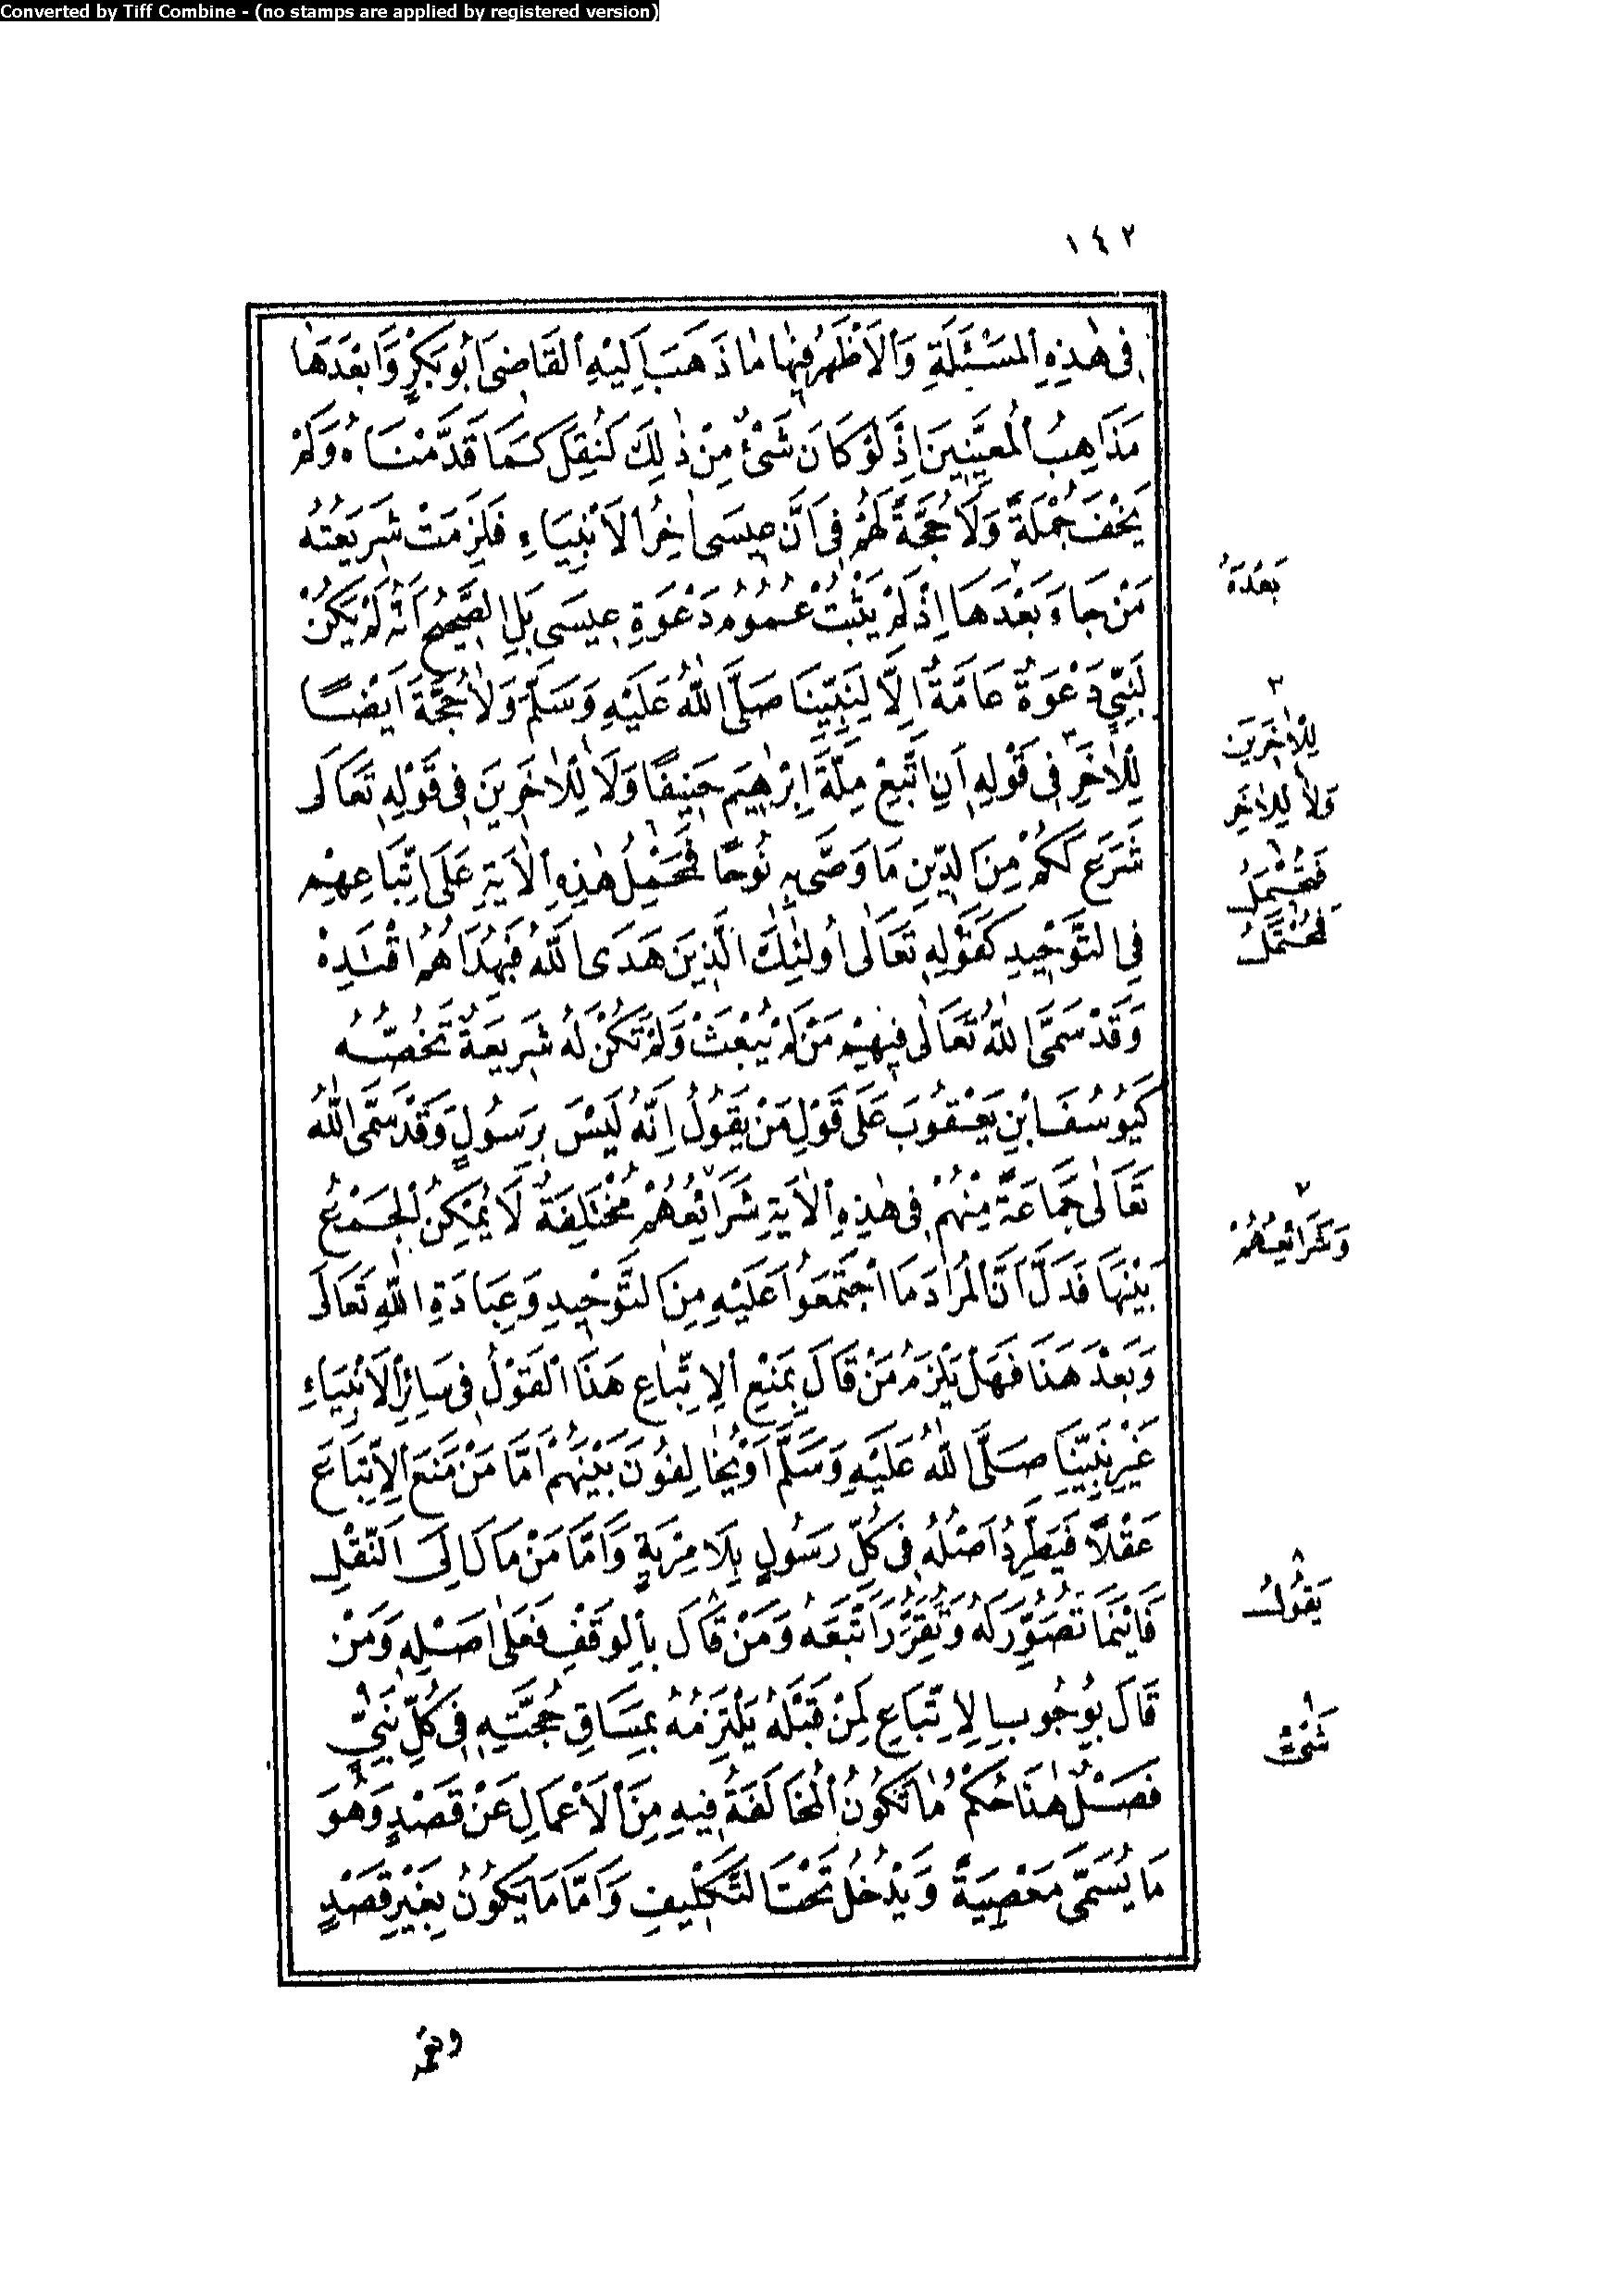 Converted by Tiff Combine - (no stamps are applied by registered version)
١٤٢
فِى هٰذِهِ الْمَسْئَلَةِ وَالْاَظْهَرُ فِيهَا مَا ذَهَبَ اِلَيْهِ الْقَاضِى اَبُو بَكْرٍ وَاَبْعَدُهَا
مَذَاهِبُ الْمُعَيِّنِينَ اِذْ لَوْ كَانَ شَىْءٌ مِنْ ذٰلِكَ لَنُقِلَ كَمَا قَدَّمْنَاهُ وَلَمْ
يَخْفَ جُمْلَةً وَلَا حُجَّةَ لَهُمْ فِى اَنَّ عِيسَى اٰخِرُ الْاَنْبِيَاءِ فَلَزِمَتْ شَرِيعَتُهُ
مَنْ جَاءَ بَعْدَهَا اِذْ لَمْ يَثْبُتْ عُمُومُ دَعْوَةِ عِيسَى بَلِ الصَّحِيحُ اَنَّهُ لَمْ يَكُنْ
لِنَبِيٍّ دَعْوَةٌ عَامَّةٌ اِلَّا لِنَبِيِّنَا صَلَّى اللّٰهُ عَلَيْهِ وَسَلَّمَ وَلَا حُجَّةَ اَيْضًا
لِلْاٰخَرِ فِى قَوْلِهِ اَنِ اتَّبِعْ مِلَّةَ اِبْرٰهِيمَ حَنِيفًا وَلَا لِلْاٰخَرِينَ فِى قَوْلِهِ تَعَالَى
شَرَعَ لَكُمْ مِنَ الدِّينِ مَا وَصَّى بِهِ نُوحًا فَمَحْمِلُ هٰذِهِ الْاٰيَةِ عَلَى اِتِّبَاعِهِمْ
فِى التَّوْحِيدِ كَقَوْلِهِ تَعَالٰى اُولٰئِكَ الَّذِينَ هَدَى اللّٰهُ فَبِهُدَاهُمُ اقْتَدِهْ
وَقَدْ سَمَّى اللّٰهُ تَعَالٰى فِيهِمْ مَنْ لَمْ يُبْعَثْ وَلَمْ تَكُنْ لَهُ شَرِيعَةٌ تَخُصُّهُ
كَيُوسُفَ ابْنِ يَعْقُوبَ عَلَى قَوْلِ مَنْ يَقُولُ اِنَّهُ لَيْسَ بِرَسُولٍ وَقَدْ سَمَّى اللّٰهُ
تَعَالٰى جَمَاعَةً مِنْهُمْ فِى هٰذِهِ الْاٰيَةِ شَرَائِعُهُمْ مُخْتَلِفَةٌ لَا يُمْكِنُ الْجَمْعُ
بَيْنَهَا فَدَلَّ اَنَّ الْمُرَادَ مَا اجْتَمَعُوا عَلَيْهِ مِنَ التَّوْحِيدِ وَعِبَادَةِ اللّٰهِ تَعَالَى
وَبَعْدَ هَذَا فَهَلْ يَلْزَمُ مَنْ قَالَ بِمَنْعِ الْاِتِّبَاعِ هَذَا الْقَوْلُ فِى سَائِرِ الْاَنْبِيَاءِ
غَيْرِ نَبِيِّنَا صَلَّى اللّٰهُ عَلَيْهِ وَسَلَّمَ اَوْ يُخَالِفُونَ بَيْنَهُمْ اَمَّا مَنْ مَنَعَ الْاِتِّبَاعَ
عَقْلًا فَيَطَّرِدُ اَصْلُهُ فِى كُلِّ رَسُولٍ بِلَا مِرْيَةٍ وَاَمَّا مَنْ مَالَ اِلَى النَّقْلِ
فَاَيْنَمَا تُصُوِّرَ لَهُ وَتُقُرِّرَ اتَّبَعَهُ وَمَنْ قَالَ بِالْوَقْفِ فَعَلٰى اَصْلِهِ وَمَنْ
قَالَ بِوُجُوبِ الْاِتِّبَاعِ لِمَنْ قَبْلَهُ يَلْتَزِمُهُ بِمَسَاقِ حُجَّتِهِ فِى كُلِّ نَبِيٍّ
فَصْلٌ هٰذَا حُكْمُ مَا تَكُونُ الْمُخَالَفَةُ فِيهِ مِنَ الْاَعْمَالِ عَنْ قَصْدٍ وَهُوَ
مَا يُسَمَّى مَعْصِيَةً وَيَدْخُلُ تَحْتَ التَّكْلِيفِ وَاَمَّا مَا يَكُونُ بِغَيْرِ قَصْدٍ
بَعْدَهُ
٣
لِلْاٰخَرِينَ
وَلَا لِلْاٰخَرِ
فَتُحْمَلُ
٧
وَشَرَائِعُهُمْ
٨
يَقُولُ
٩
شَىْءٍ